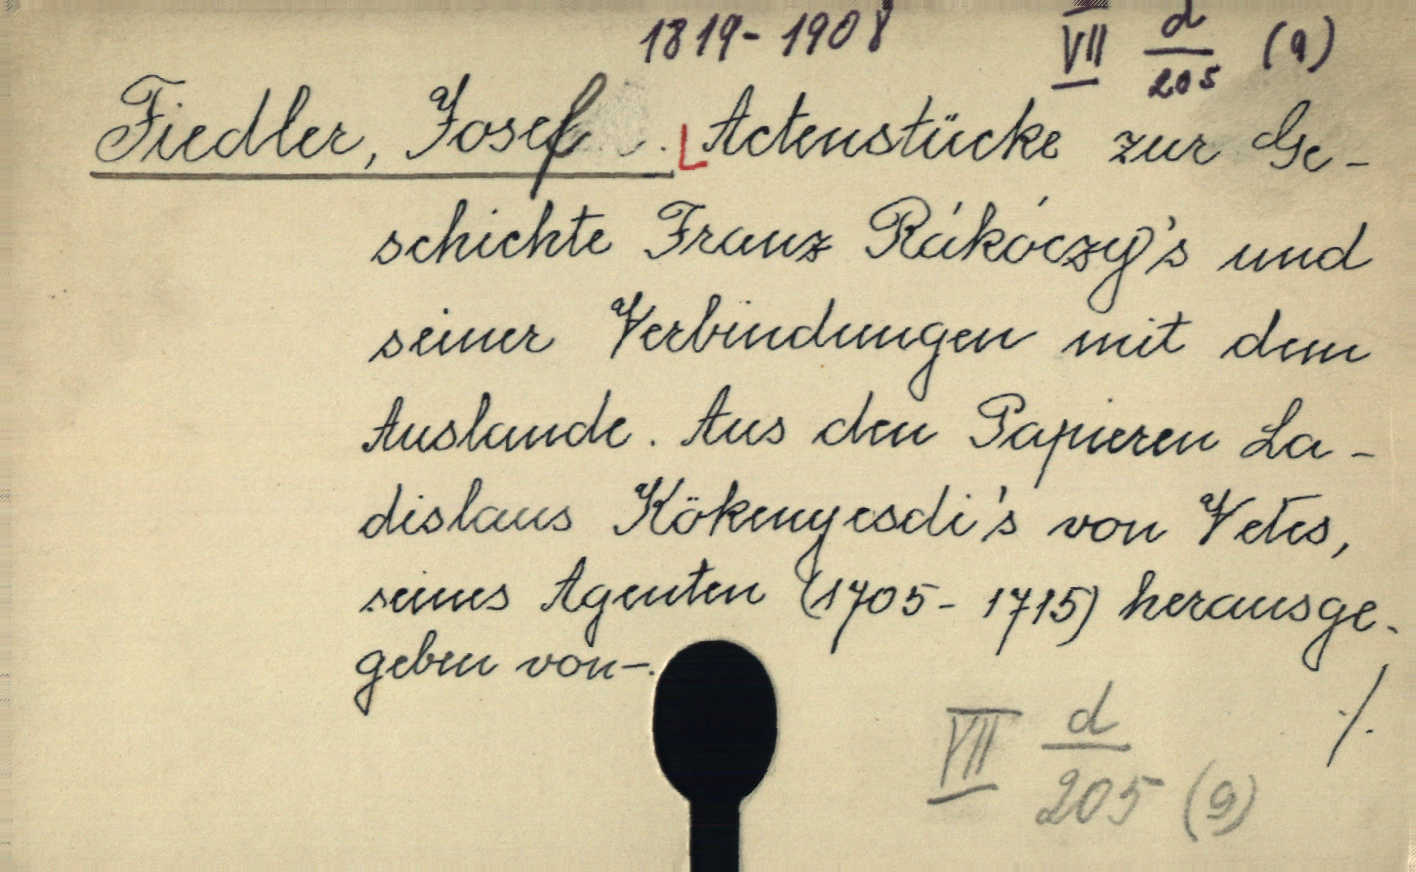 1819-1908 VII d/205 (9)
Fiedler, Josef . Actenstücke zur Ge-
schichte Franz Rákóczy's und
seiner Verbindungen mit dem
Auslande. Aus den Papieren La-
dislaus Kökenyesdi's von Vetes,
seines Agenten (1705-1715) herausge-
geben von-.
./.
VII d/205 (9)